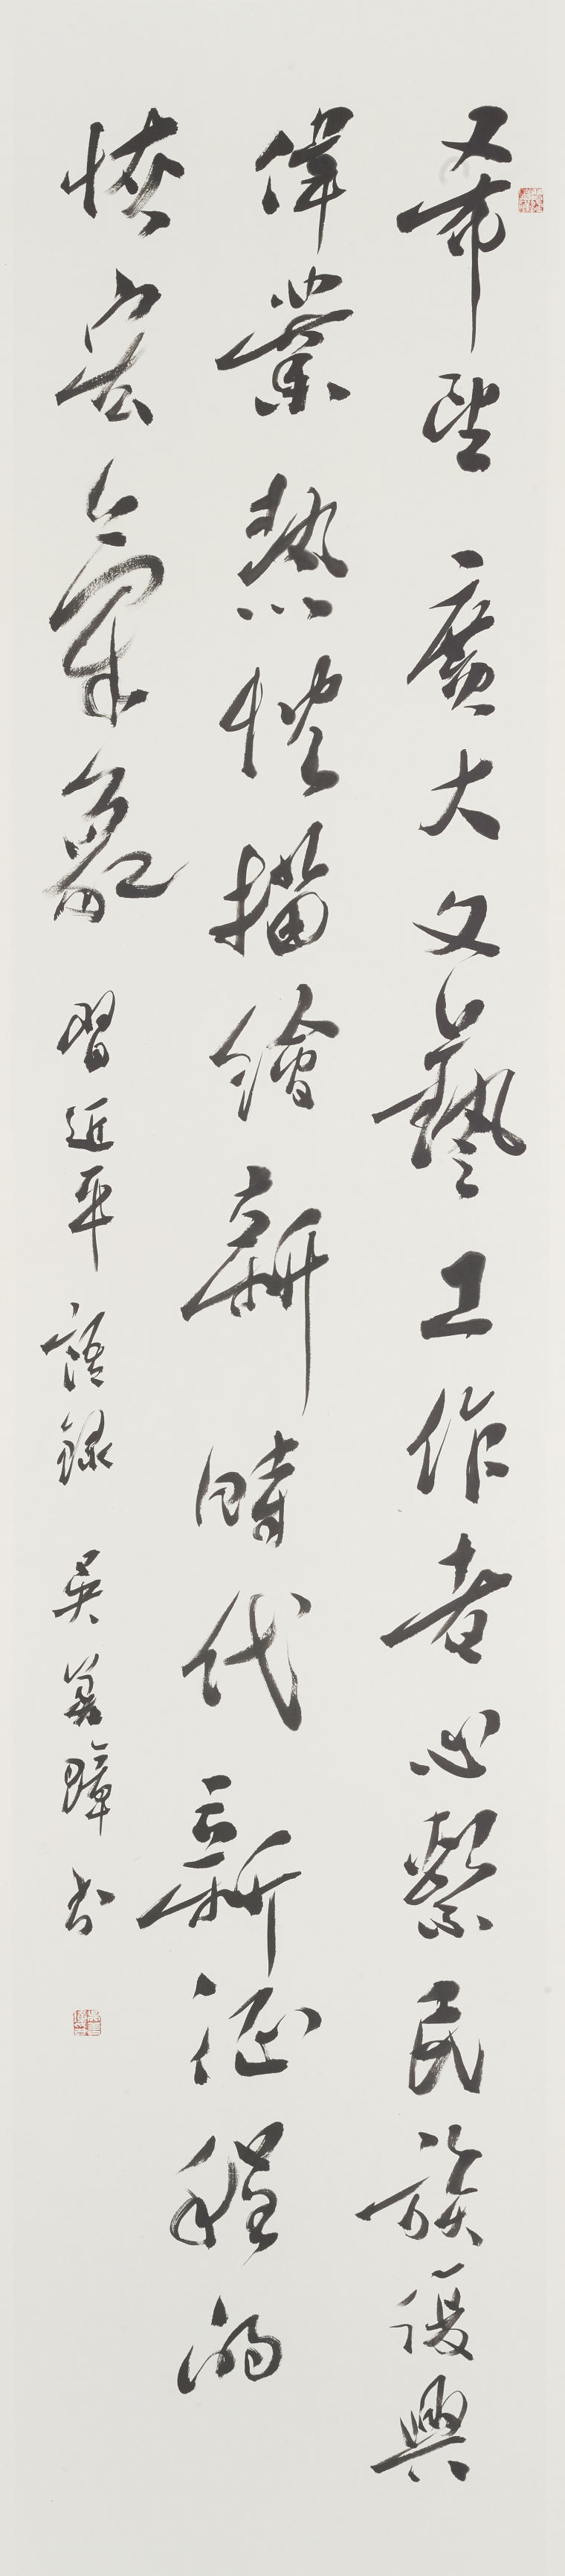 希望廣大文藝工作者心繫民族復興
偉業熱忱描繪新時代新征程的
恢宏氣象 習近平語錄 吳美璋书